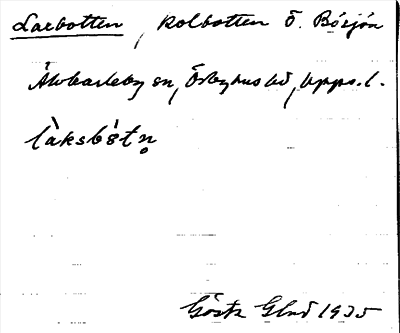 Laxbotten, Kolbotten Ö. Bósjön
Älvkarleby sn, Örbyhus hd, Upps. l.
làksbòtn̥
Gösta Glad 1935